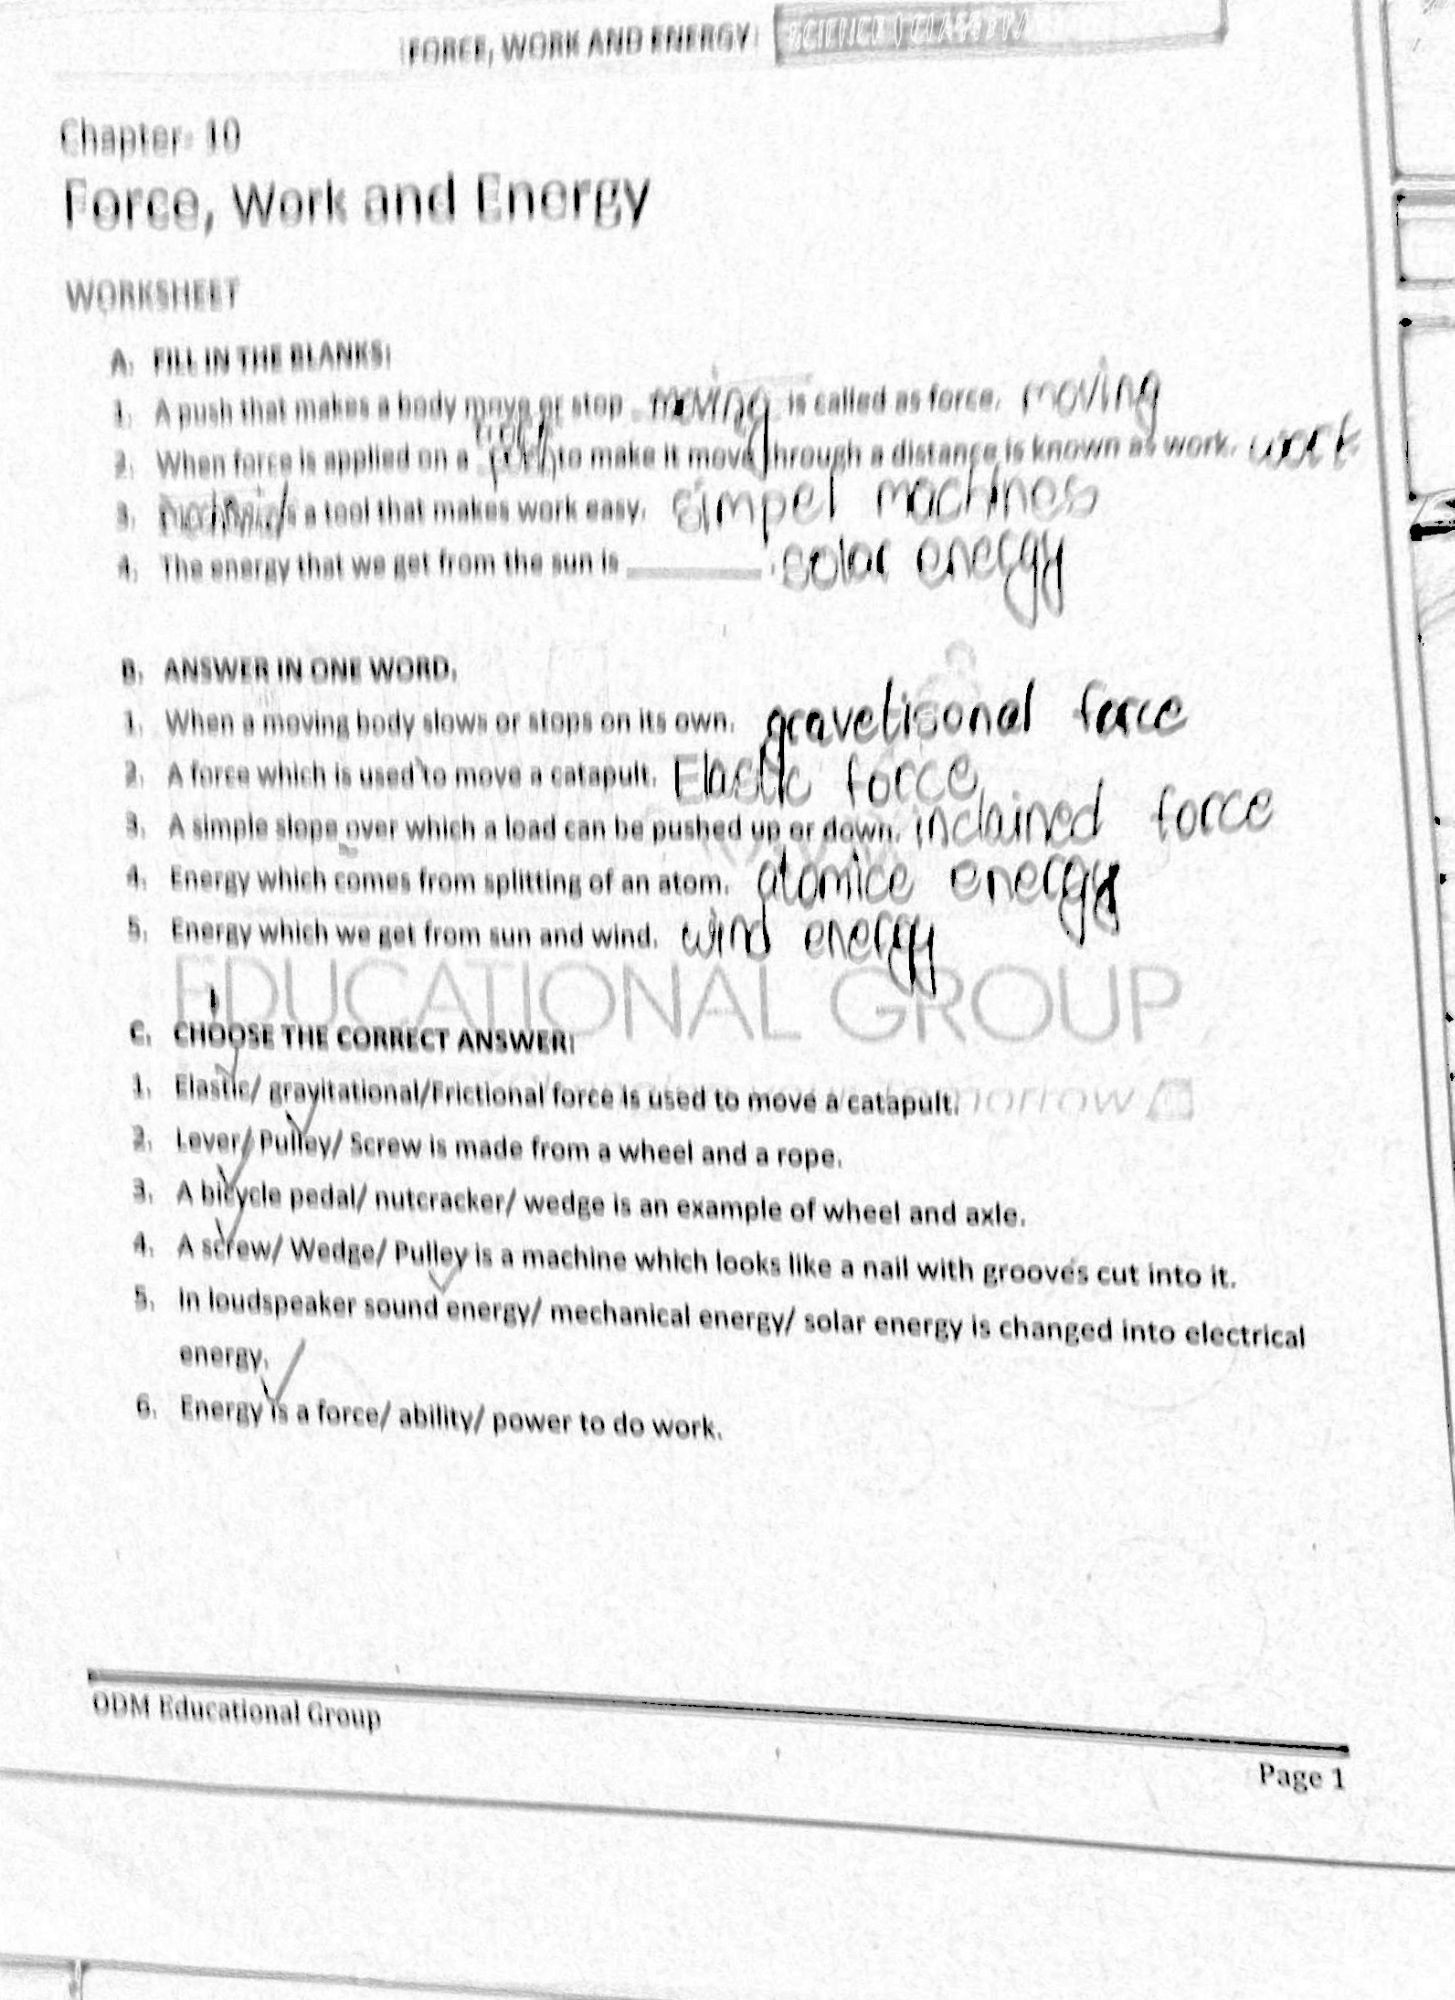 FORCE, WORK AND ENERGY SCIENCE | CLASS
Chapter- 10
Force, Work and Energy
WORKSHEET
A. FILL IN THE BLANKS:
1. A push that makes a body move or stop moving is called as force. moving
2. When force is applied on a to make it move through a distance is known as work. work
3. is a tool that makes work easy. simpel machines
4. The energy that we get from the sun is ________. solar energy
B. ANSWER IN ONE WORD.
1. When a moving body slows or stops on its own. gravetisonal force
2. A force which is used to move a catapult. Elastic force
3. A simple slope over which a load can be pushed up or down. inclained force
4. Energy which comes from splitting of an atom. atomice energy
5. Energy which we get from sun and wind. wind energy
EDUCATIONAL GROUP
C. CHOOSE THE CORRECT ANSWER:
1. Elastic/ gravitational/Frictional force is used to move a catapult.
2. Lever/ Pulley/ Screw is made from a wheel and a rope.
3. A bicycle pedal/ nutcracker/ wedge is an example of wheel and axle.
4. A screw/ Wedge/ Pulley is a machine which looks like a nail with grooves cut into it.
5. In loudspeaker sound energy/ mechanical energy/ solar energy is changed into electrical
energy.
6. Energy is a force/ ability/ power to do work.
ODM Educational Group
Page 1